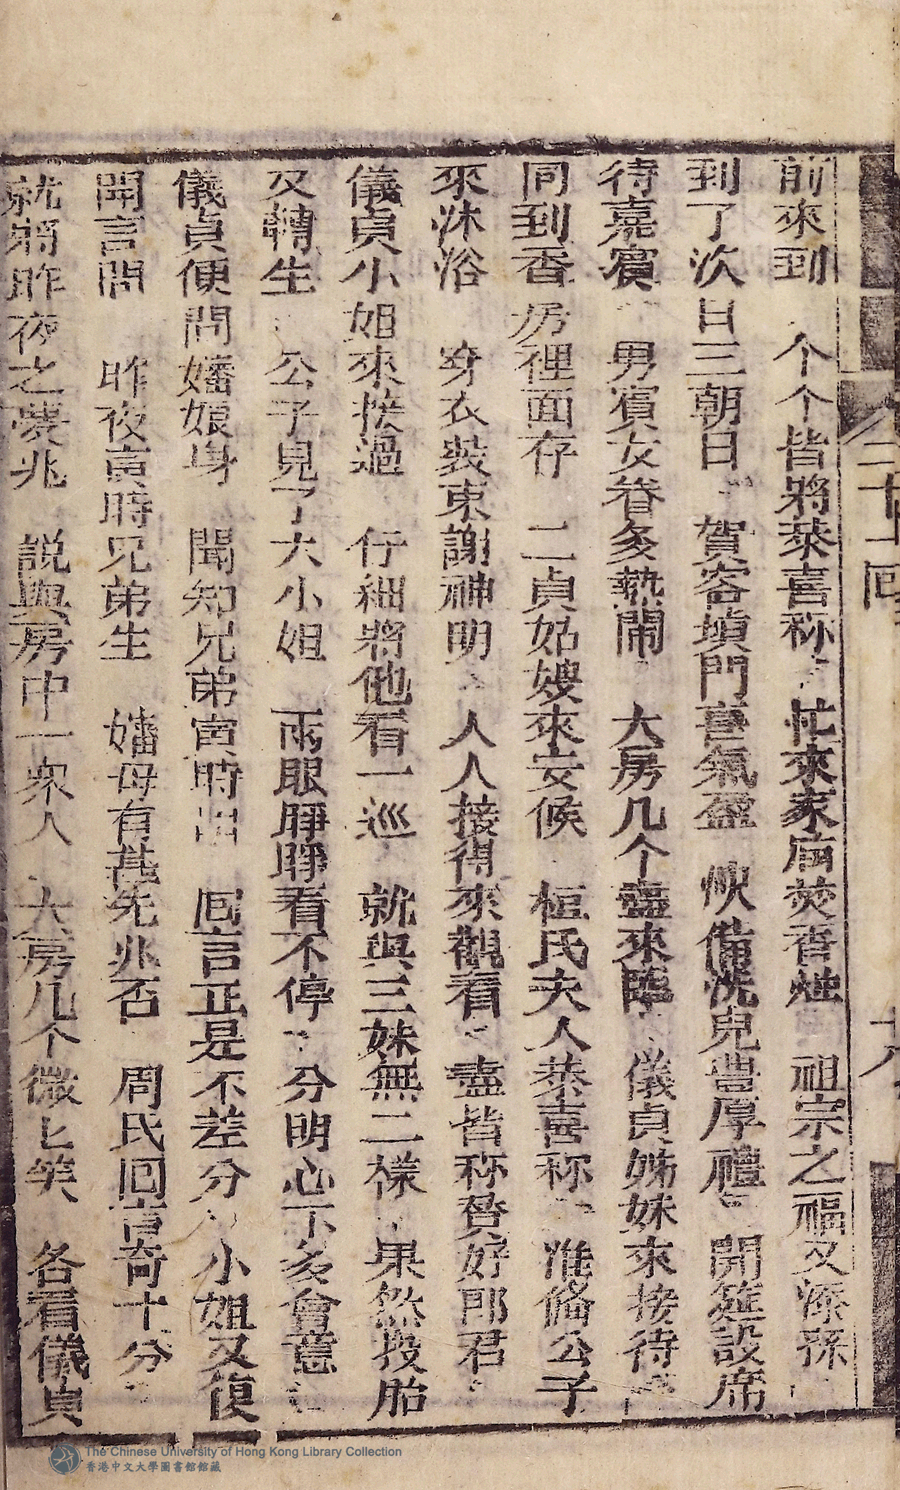 二十一回
十八
前來到 个个皆將恭喜称 忙來家廟焚香燭 祖宗之福又添孫
到了次日三朝日 賀客塡門喜氣盈 快備洗兒豊厚禮 開筵設席
待嘉賓 男賓女眷多熱鬧 大房几个盡來臨 儀貞姊妹來接待
同到香房裡面存 二貞姑嫂來安候 桓氏夫人恭喜称 准俻公子
來沐浴 穿衣裝束謝神明 人人接得來觀看 盡皆称賛好郎君
儀貞小姐來接過 仔細將他看一巡 就與三妹無二樣 果然投胎
又轉生 公子見了大小姐 兩眼睜睜看不停 分明心下多會意
儀貞便問嬸娘身 聞知兄弟寅時出 回言正是不差分 小姐又復
開言問 昨夜寅時兄弟生 嬸母有甚先兆否 周氏回言奇十分
就將昨夜之夢兆 説與房中一衆人 大房几个微匕笑 各看儀貞
The Chinese University of Hong Kong Library Collection
香港中文大學圖書館館藏